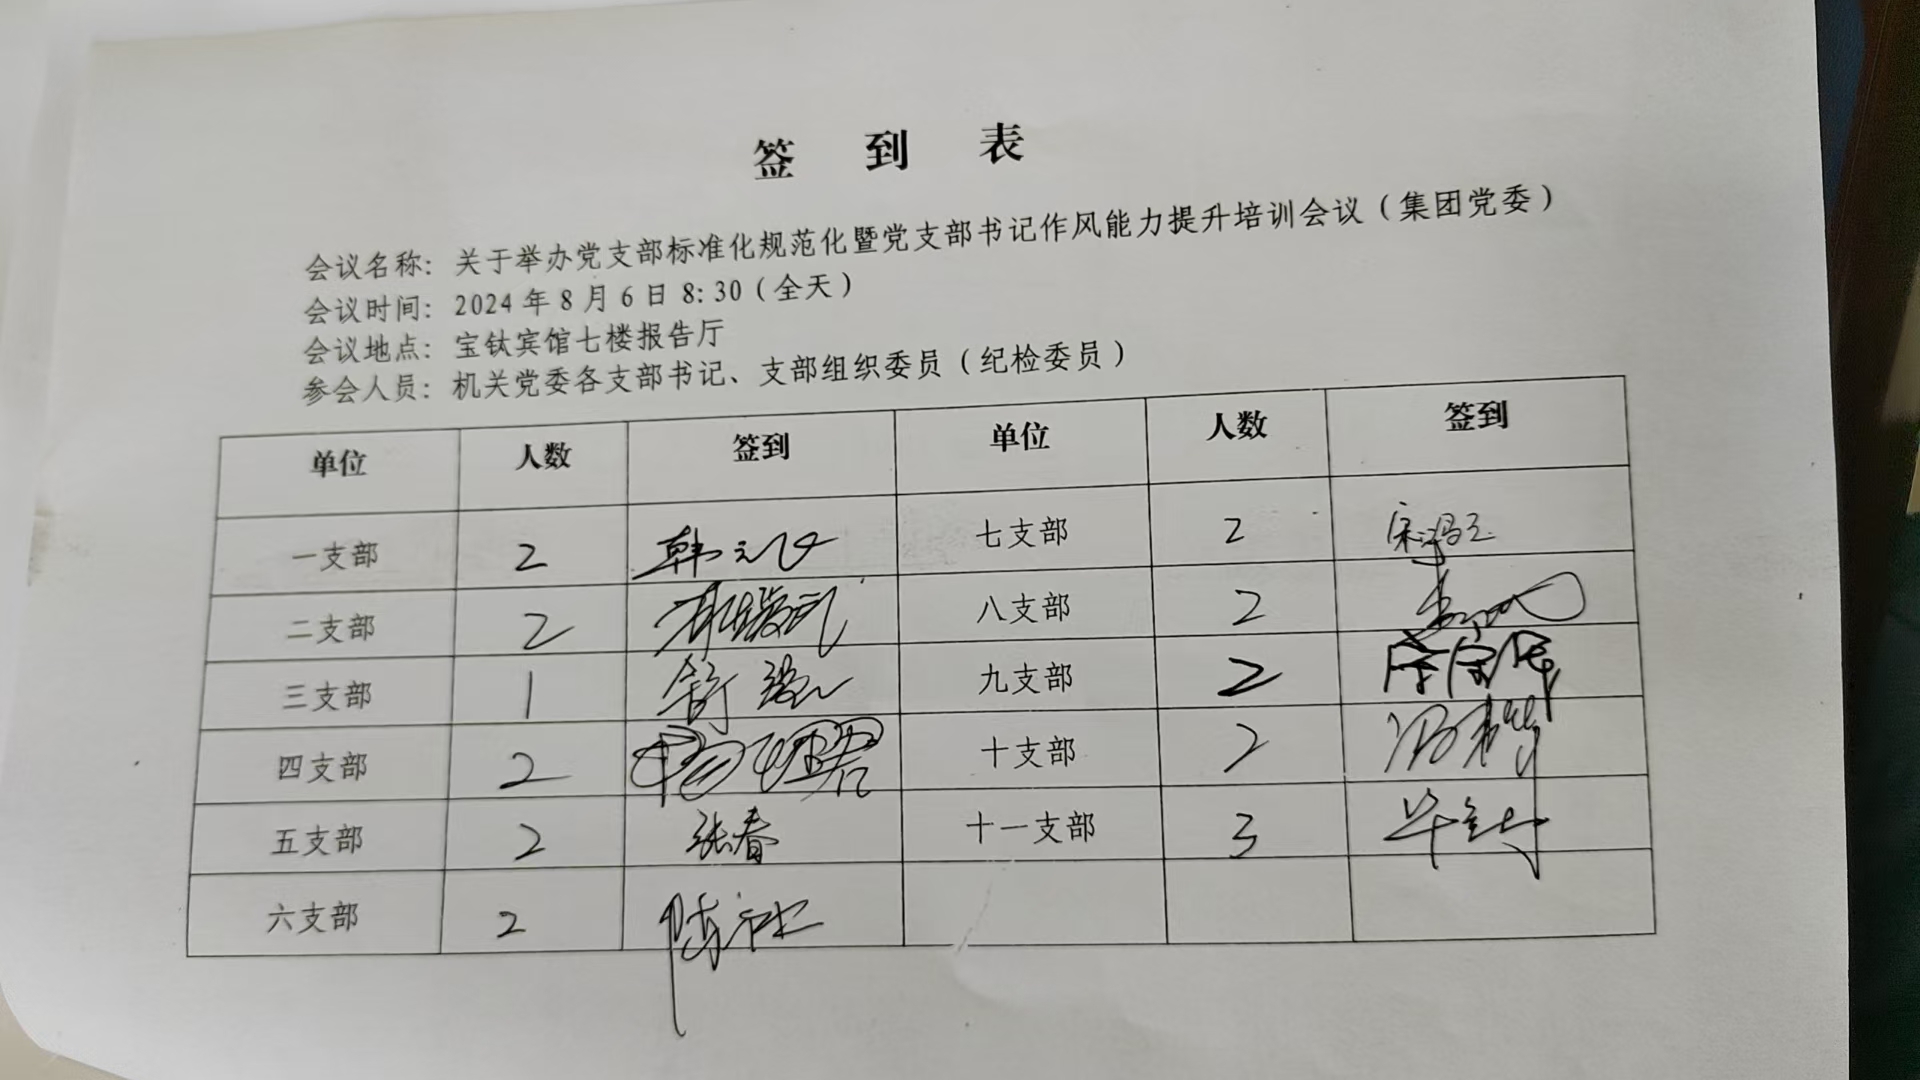 签 到 表
会议名称：关于举办党支部标准化规范化暨党支部书记作风能力提升培训会议（集团党委）
会议时间：2024年8月6日8:30（全天）
会议地点：宝钛宾馆七楼报告厅
参会人员：机关党委各支部书记、支部组织委员（纪检委员）
单位 人数 签到 单位 人数 签到
一支部 2 韩 七支部 2 宋
二支部 2 八支部 2
三支部 1 舒 九支部 2
四支部 2 十支部 2
五支部 2 张春 十一支部 3 毕
六支部 2 陈